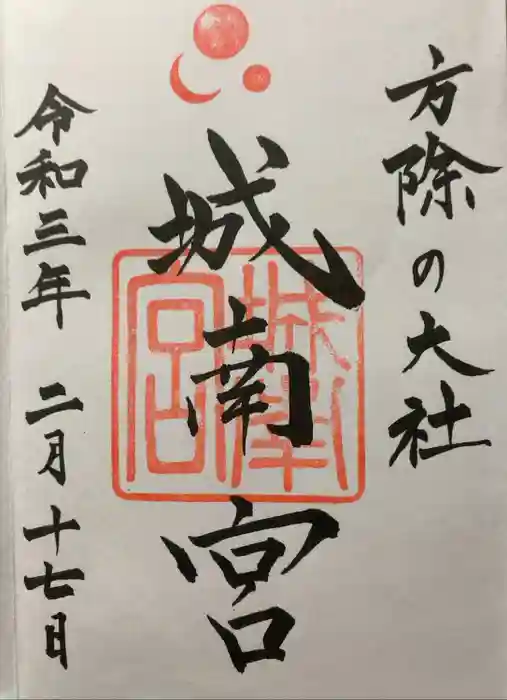 方除の大社
城南宮
令和三年 二月十七日